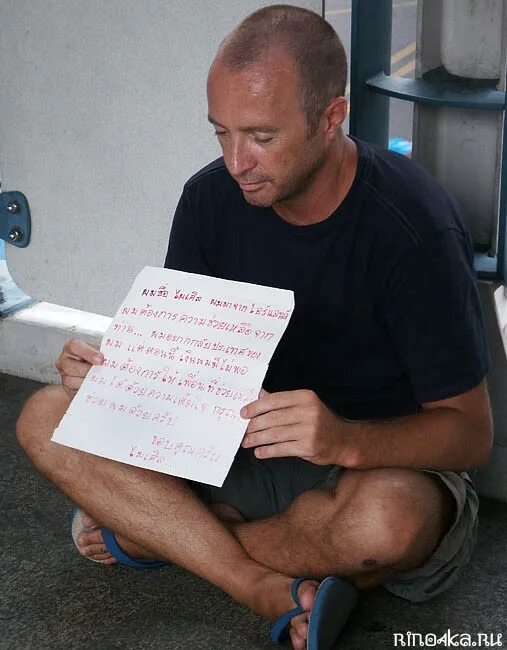 ผมชื่อ ไมเคิล ผมมาจาก ไอร์แลนด์
ผมต้องการความช่วยเหลือจาก
ท่าน... ผมอยากกลับประเทศของ
ผม แต่ตอนนี้ เงินผมมีไม่พอ
ผมต้องการให้ เพื่อนที่ช่วยเหลือ
ผมได้ด้วยความเต็มใจ กรุณา
ช่วยผมด้วยครับ
ขอบคุณครับ
ไมเคิล
nino4ka.ru